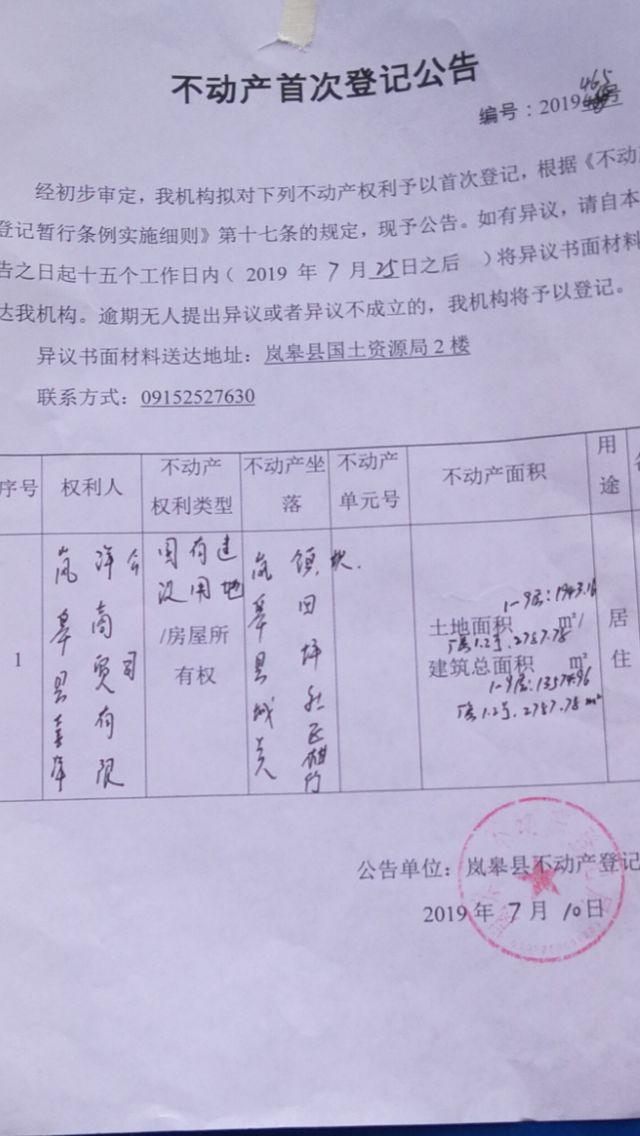 不动产首次登记公告
编号：2019465号
经初步审定，我机构拟对下列不动产权利予以首次登记，根据《不动产
登记暂行条例实施细则》第十七条的规定，现予公告。如有异议，请自本
告之日起十五个工作日内（ 2019 年 7 月 25日之后 ）将异议书面材料
达我机构。逾期无人提出异议或者异议不成立的，我机构将予以登记。
异议书面材料送达地址：岚皋县国土资源局2楼
联系方式：09152527630
序号 权利人 不动产权利类型 不动产坐落 不动产单元号 不动产面积 用途
1
岚皋县
洋商贸有限
公司
国有建设用地
/房屋所有权
岚皋县城关
镇田坪社区
1-9层：1943.16
土地面积 m²/
1.2号.2787.78
建筑总面积 m²
1-9层：13574.96
1.2号.2787.78m²
居住
公告单位：岚皋县不动产登记
2019年 7月 10日